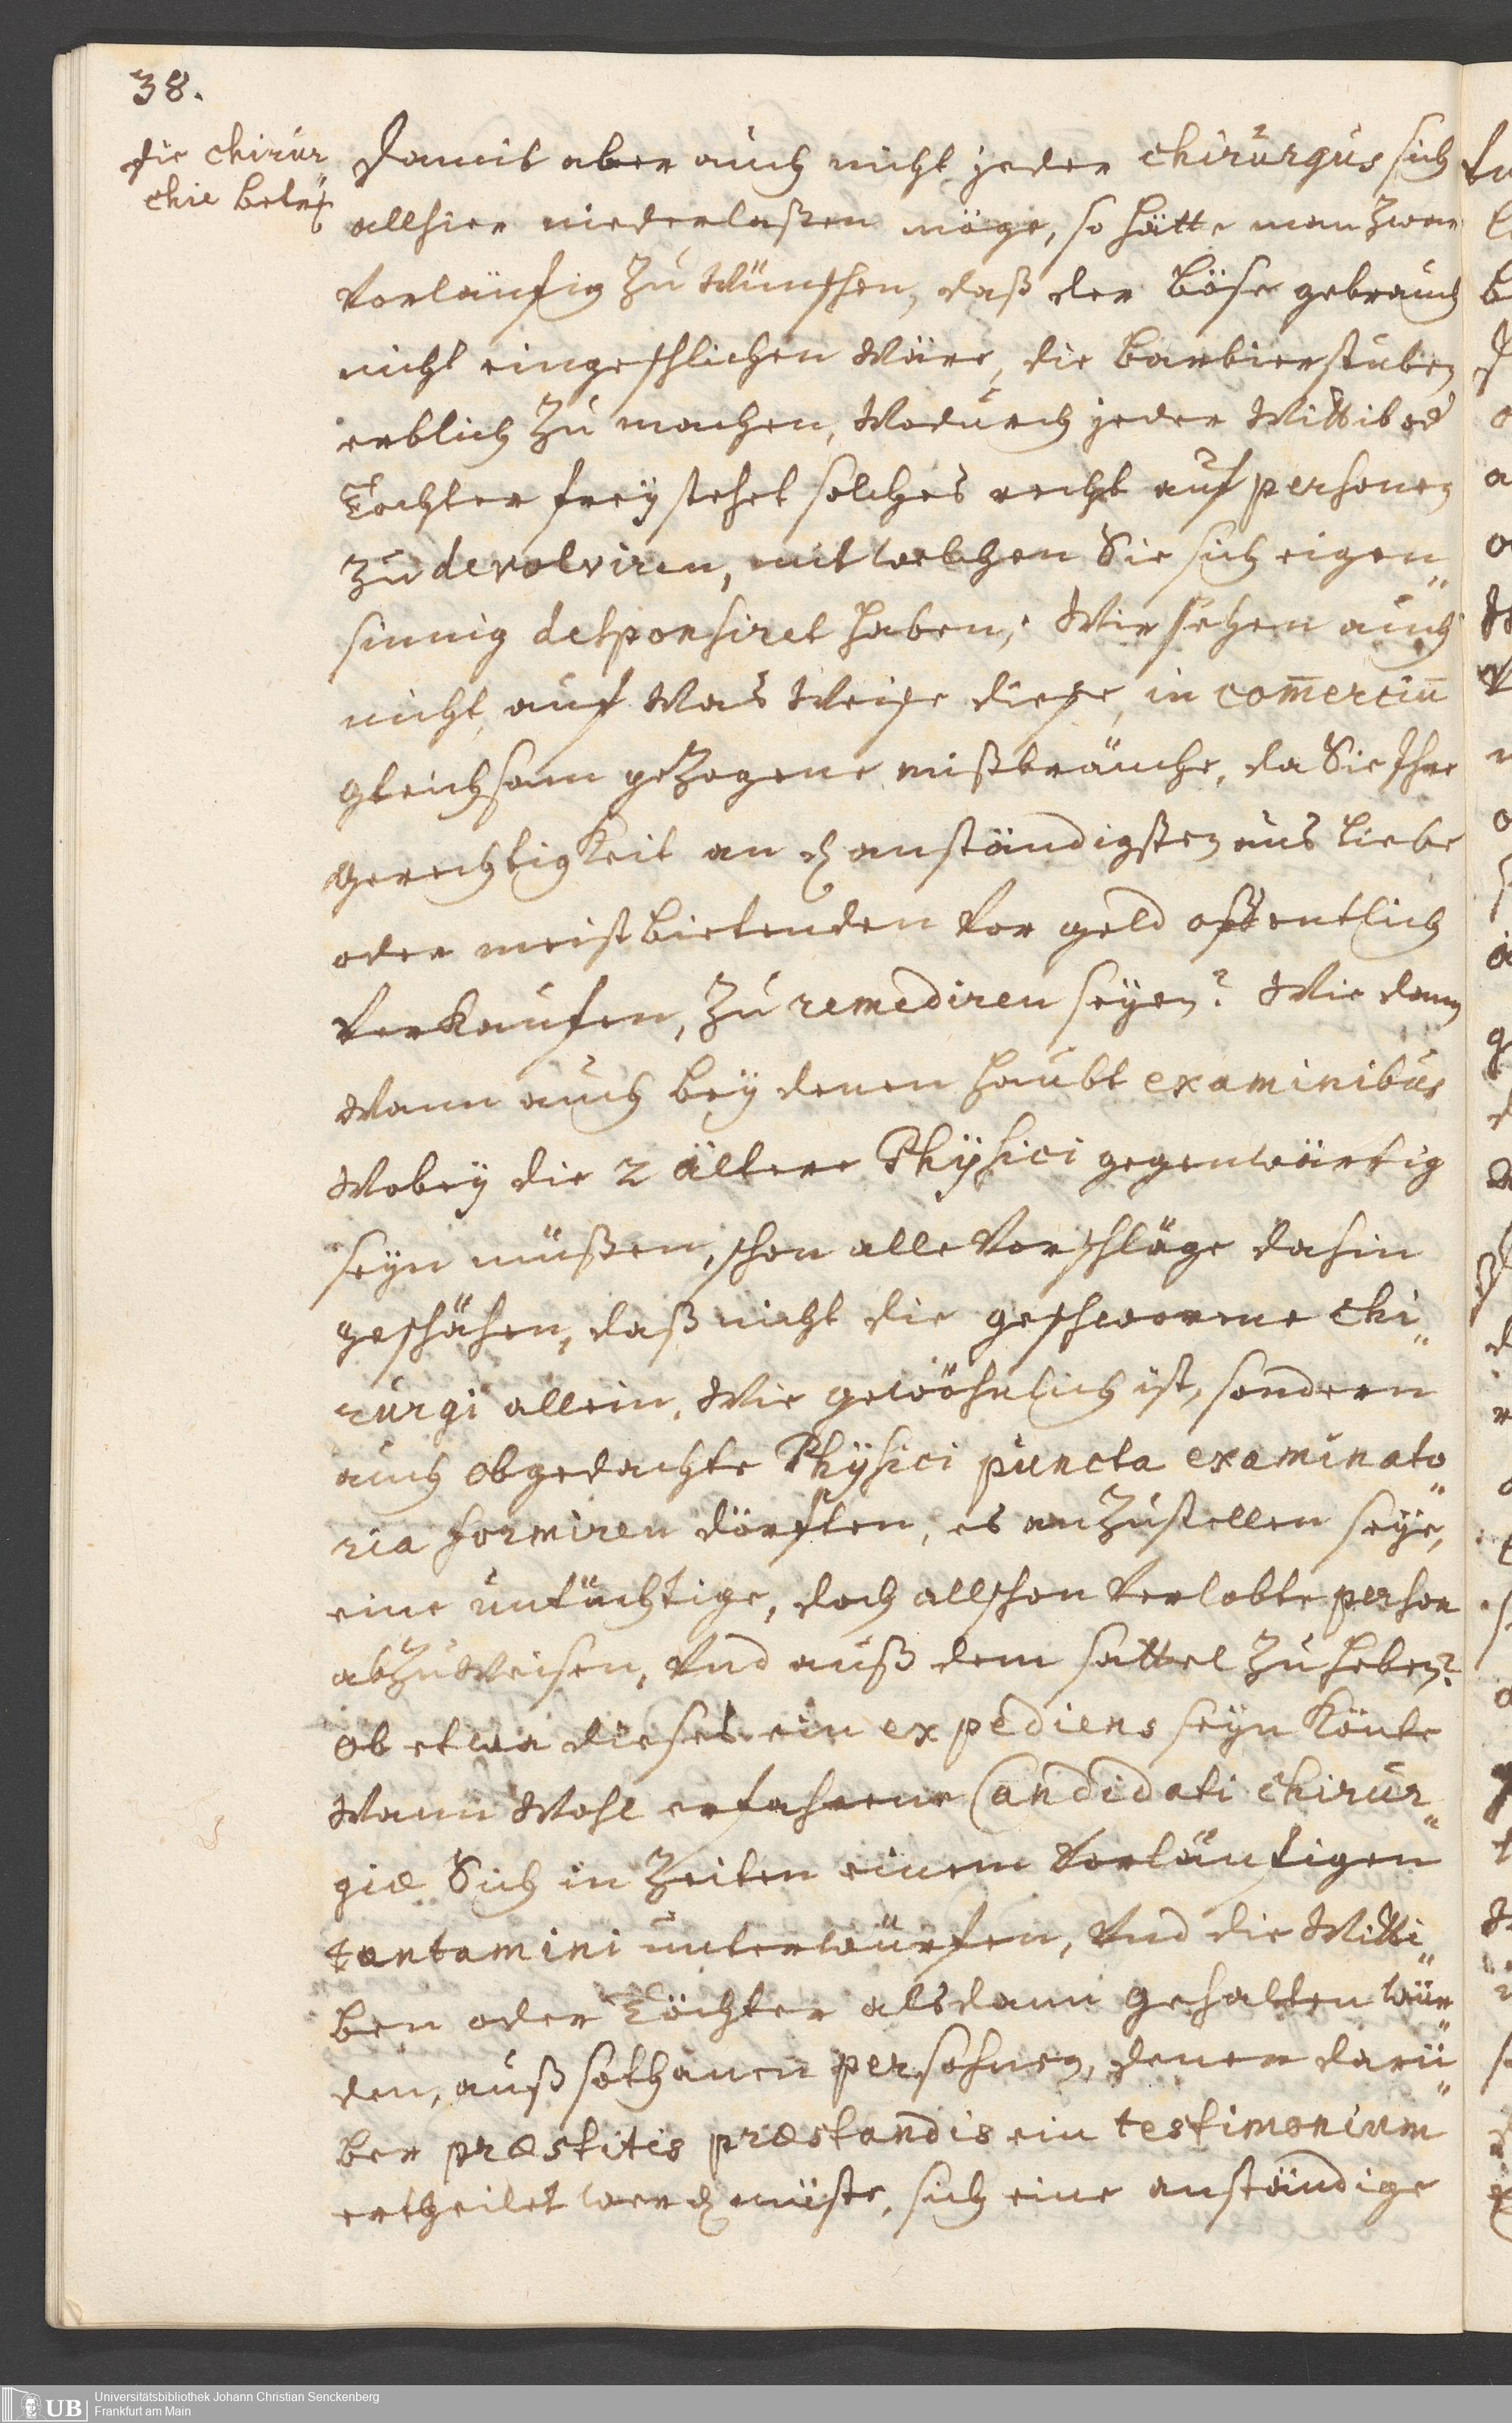 38.
die chirur
chie betref
Damit aber auch nicht jeder chirurgus sich
allhier niederlaßen möge, so hätte man zwar
vorläufig zu wünschen, daß der böse gebrauch
nicht eingeschlichen wäre, die barbierstuben
erblich zu machen, wodurch jeder Wittib od
Tochter frey stehet solches recht auf personen
zu devolviren, mit welchen Sie sich eigen„
sinnig desponsiret haben; Wir sehen auch
nicht, auf was Weise diese, in com̅erciu̅
gleichsam gezogene mißbräuche, da Sie Ihre
Gerechtigkeit an d anständigsten aus liebe
oder meistbietenden vor geld offentlich
verkaufen, zu remediren seyen? Wie dann
wann auch bey denen haubt examinibus
wobey die 2 ältere Physici gegenwärtig
seyn müßen, schon alle vorschläge dahin
geschähen, daß nicht die geschworne chi„
rurgi allein, wie gewöhnlich ist, sondern
auch obgedachte Physici puncta examinato„
ria formiren dörften, es anzustellen seye,
eine untüchtige, doch allschon verlobte person
abzuweisen, und auß dem sattel zu heben?
ob etwa dieses ein expediens seyn könte
wann wohl erfahrene Candidati chirur„
giæ Sich in Zeiten einem vorläufigen
tentamini unterwürfen, und die Witti„
ben oder Töchter alsdann gehalten wür„
den, auß sothanen persohnen, denen darü„
ber præstitis præstandis ein testimonium
ertheilet werd müste, sich eine anständige
Universitätsbibliothek Johann Christian Senckenberg
Frankfurt am Main
UB